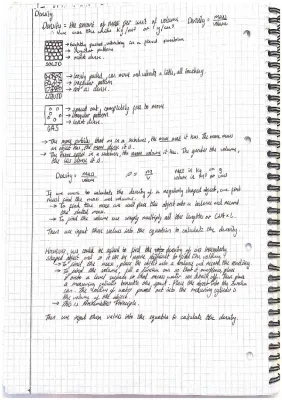 Density
Density = the amount of mass per unit of volume Density = mass
volume
units kg/m³ or g/cm³
tightly packed, vibrating in a fixed position
regular pattern
most dense.
SOLID
loosely packed, can move and vibrate a little, all touching.
irregular pattern
not as dense.
LIQUID
spread out, completely free to move
irregular pattern
least dense.
GAS
→ The more particles that are in a substance, the more mass it has. The more mass
an object has, the more dense it is.
→ The more space in a substance, the more volume it has. The greater the volume,
the less dense it is.
Density = mass
volume
ρ = m
V
mass is kg or g
volume is m³ or cm³
If we want to calculate the density of a regularly shaped object, we first
must find the mass and volume.
→ To find the mass we will place the object onto a balance and record
the stated mass.
→ To find the volume we simply multiply all the lengths or L×W×H.
Then we input these values into the equation to calculate the density.
However, we could be asked to find the density of an irregularly
shaped object and so it can be more difficult to find the volume.
→ To find the mass, place the object onto a balance and record the reading.
→ To find the volume, fill a Eureka can so that
a measuring cylinder beneath the spout. Place the object into the Eureka
can. The volume of water poured out into the measuring cylinder is
the volume of the object.
→ This is Archimedes Principle.
Then we input these values into the equation to calculate the density.